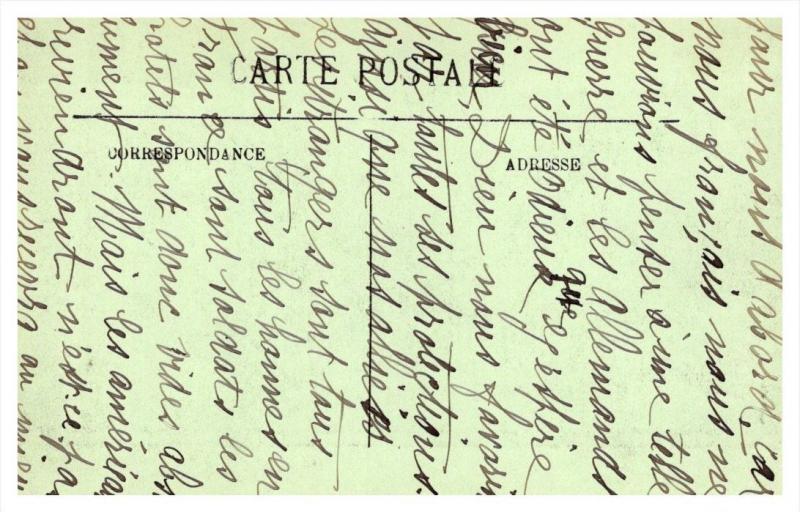 CARTE POSTALE
CORRESPONDANCE
ADRESSE
pour nous d'abord, car
nous français nous ne
pouvions penser à une telle
guerre et les allemands
ont été odieux que j'espère
bien Dieu nous favori
toutes ses protections
ainsi que nos alliés
étrangers sont tous
partis tous les hommes en
France sont soldats les
hotels sont donc vides abs
ument. Mais les améri
reviendront n'est-ce pas
et vous recevra au mie